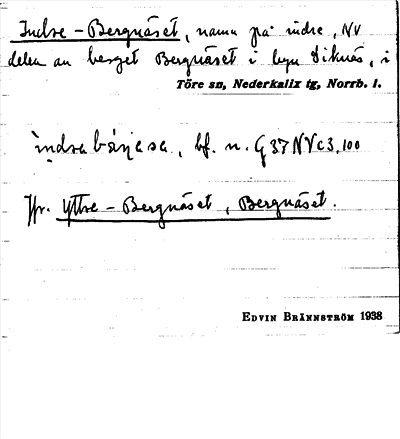 Indre - Bergnäset, namn på indre, NV
delen av berget Bergnäset i byn Siknäs, i
Töre sn, Nederkalix tg, Norrb. l.
bf. n. G 37 NV c3, 100
Jfr. Yttre - Bergnäset, Bergnäset.
EDVIN BRÄNNSTRÖM 1938